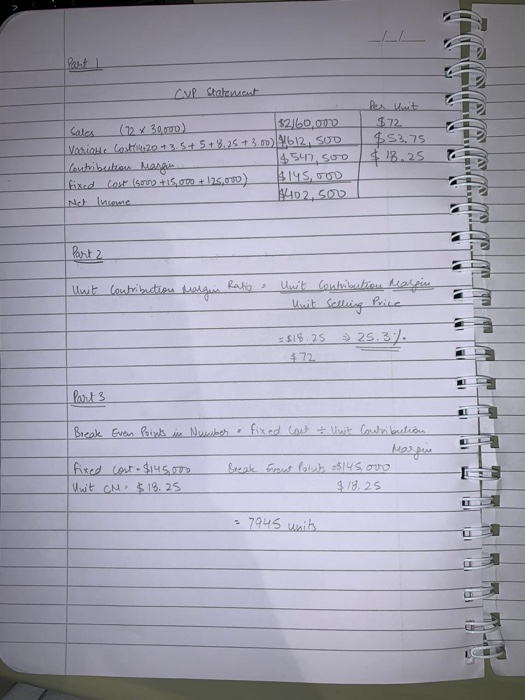 Part 1
CVP Statement
Per Unit
Sales (72 x 30,000) $2,160,000 $72
Variable Cost(14+20+3.5+5+8.25+3.00) $1612,500 $53.75
Contribution Margin $547,500 $18.25
Fixed Cost (5000+15,000+125,000) $145,000
Net Income $402,500
Part 2
Unit Contribution Margin Ratio = Unit Contribution Margin
Unit Selling Price
= $18.25 ⇒ 25.3%.
$72
Part 3
Break Even Points in Number = Fixed Cost ÷ Unit Contribution
Margin
Fixed Cost = $145,000 Break Points = $145000
Unit CM = $18.25 $18.25
= 7945 units